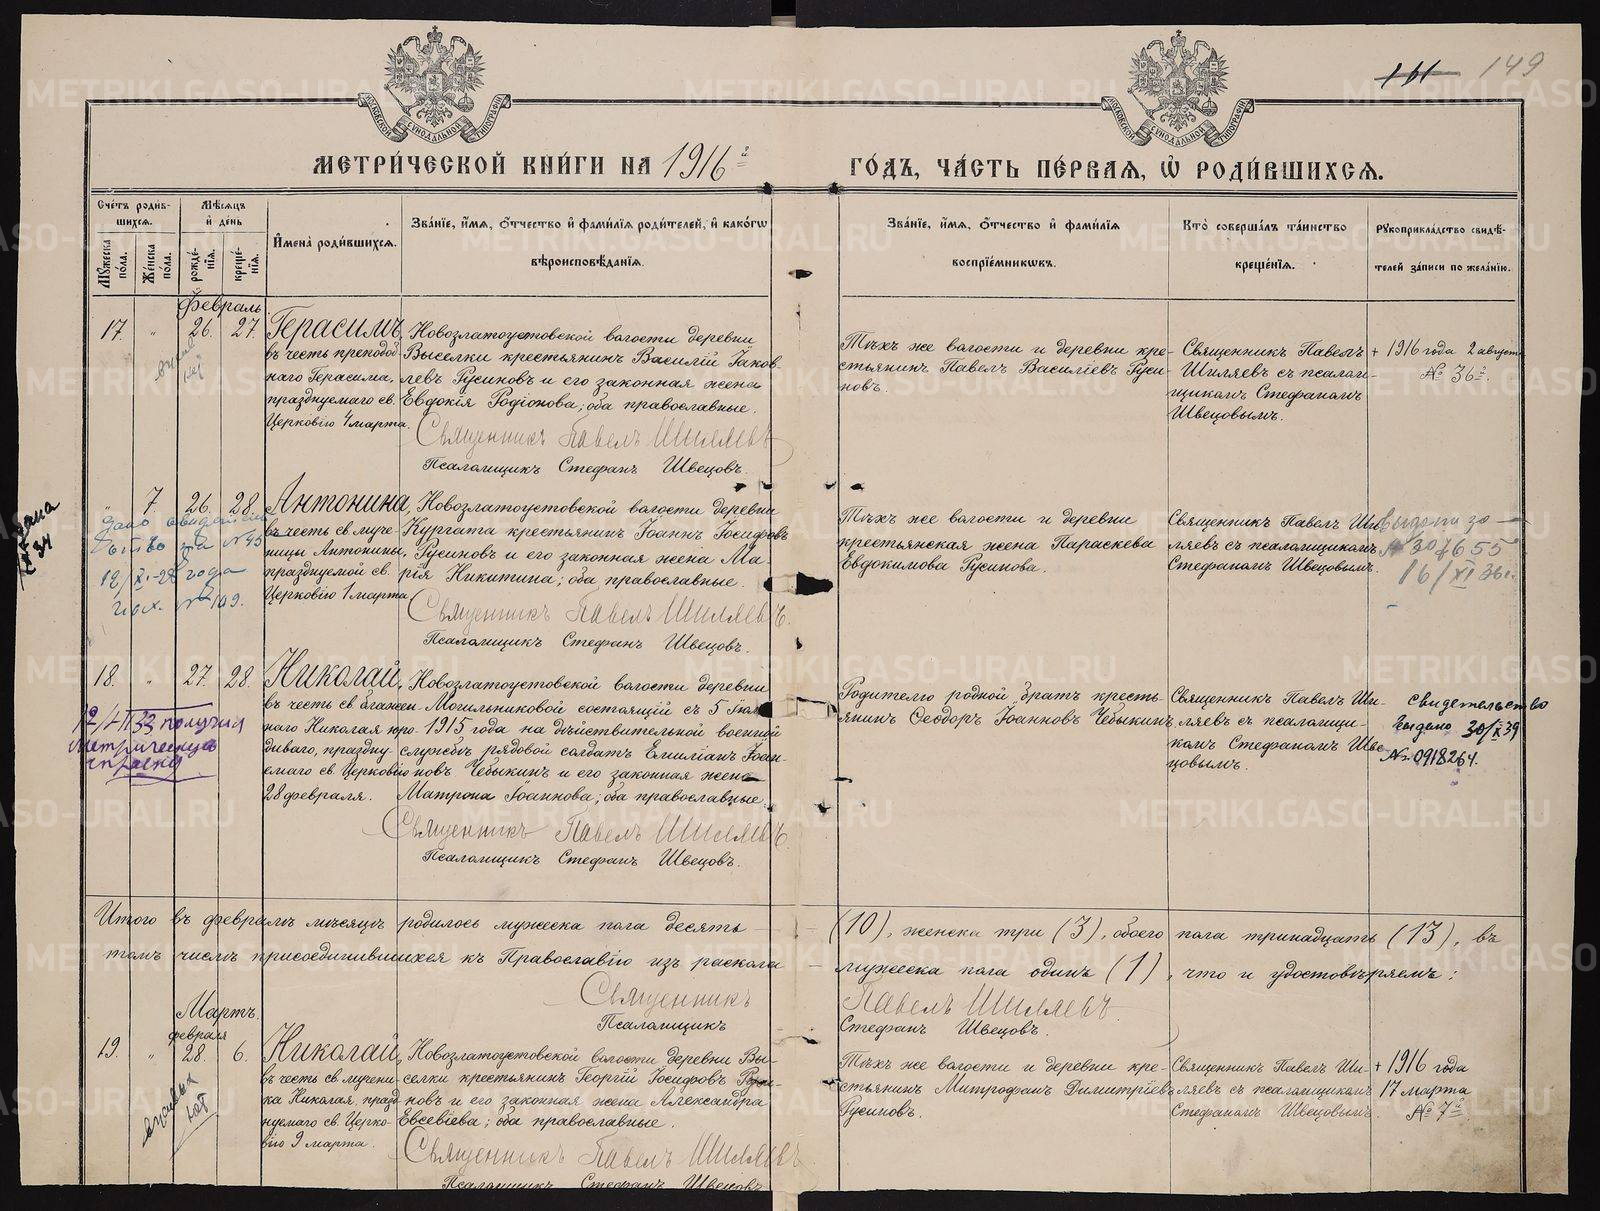 МОСКОВСКОЙ СѴНОДАЛЬНОЙ ТИПОГРАФІИ
МОСКОВСКОЙ СѴНОДАЛЬНОЙ ТИПОГРАФІИ
149
МЕТРИ́ЧЕСКОЙ КНИ́ГИ НА 1916 г
ГО́ДЪ, ЧА́СТЬ ПЕ́РВАЯ, Ѽ РОДИ́ВШИХСЯ.
Сче́тъ роди́в-
шихся.
Мѣ́сяцъ
и҆ де́нь
Мꙋ́жеска
по́ла.
Же́нска
по́ла.
рожде́-
нїя.
креще́-
нїя.
И҆мена̀ роди́вшихся.
Зва́нїе, и҆́мя, ѻ҆́тчество и҆ фами́лїя роди́телей, и҆ како́гѡ
вѣроисповѣ́данїя.
Зва́нїе, и҆́мя, ѻ҆́тчество и҆ фами́лїя
воспрїе́мникѡвъ.
Кто̀ соверша́лъ та́инство
креще́нїя.
Рꙋкоприкла́дство свидѣ́-
телей за́писи по жела́нїю.
Февраль.
17. " 26. 27.
Герасимъ,
въ честь преподоб-
наго Герасима,
празднуемаго св.
Церковію 4 марта.
Новозлатоустовской волости деревни
Выселки крестьянинъ Василій Іаков-
левъ Русиновъ и его законная жена
Евдокія Родіонова; оба православные.
Священникъ Павелъ Шиляевъ
Псаломщикъ Стефанъ Швецовъ.
Тѣхъ же волости и деревни кре-
стьянинъ Павелъ Василіевъ Руси-
новъ.
Священникъ Павелъ
Шиляевъ съ псалом-
щикомъ Стефаномъ
Швецовымъ.
+ 1916 года 2 август
№ 36.
" 7. 26. 28.
Антонина,
въ честь св. муче-
ницы Антонины,
празднуемой св.
Церковію 1 марта
Новозлатоустовской волости деревни
Кургата крестьянинъ Іоаннъ Іосифовъ
Русиновъ и его законная жена Ма-
рія Никитина; оба православные.
Священникъ Павелъ Шиляевъ.
Псаломщикъ Стефанъ Швецовъ.
Тѣхъ же волости и деревни
крестьянская жена Параскева
Евдокимова Русинова.
Священникъ Павелъ Ши-
ляевъ съ псаломщикомъ
Стефаномъ Швецовымъ.
16/XI 36г.
18. " 27. 28.
Николай,
въ честь св. блажен-
наго Николая юро-
диваго, праздну-
емаго св. Церковію
28 февраля.
Новозлатоустовской волости деревни
Могильниковой состоящій съ 5 Іюля
1915 года на дѣйствительной военной
службѣ рядовой солдатъ Емиліанъ Іоан-
новъ Чебыкинъ и его законная жена
Матрона Іоаннова; оба православные.
Священникъ Павелъ Шиляевъ.
Псаломщикъ Стефанъ Швецовъ.
получил
Родителю родной братъ кресть-
янинъ Ѳеодоръ Іоанновъ Чебыкинъ
Священникъ Павелъ Ши-
ляевъ съ псаломщи-
комъ Стефаномъ Шве-
цовымъ.
свидетельство
выдано 30/X 39
№ 0918264.
Итого въ февралѣ мѣсяцѣ родилось мужеска пола десять (10), женска три (3), обоего пола тринадцать (13), въ
томъ числѣ присоединившихся къ Православію изъ раскола мужеска пола одинъ (1), что и удостовѣряемъ:
Священникъ Павелъ Шиляевъ.
Псаломщикъ Стефанъ Швецовъ.
Мартъ.
февраля
19. " 28. 6.
Николай,
въ честь св. мучени-
ка Николая, празд-
нуемаго св. Церко-
вію 9 марта.
Новозлатоустовской волости деревни Вы-
селки крестьянинъ Георгій Іосифовъ Руси-
новъ и его законная жена Александра
Евсевіева; оба православные.
Священникъ Павелъ Шиляевъ
Псаломщикъ Стефанъ Швецовъ
Тѣхъ же волости и деревни кре-
стьянинъ Митрофанъ Димитріевъ
Русиновъ.
Священникъ Павелъ Ши-
ляевъ съ псаломщикомъ
Стефаномъ Швецовымъ.
+ 1916 года
17 марта
№ 7.
METRIKI.GASO-URAL.RU